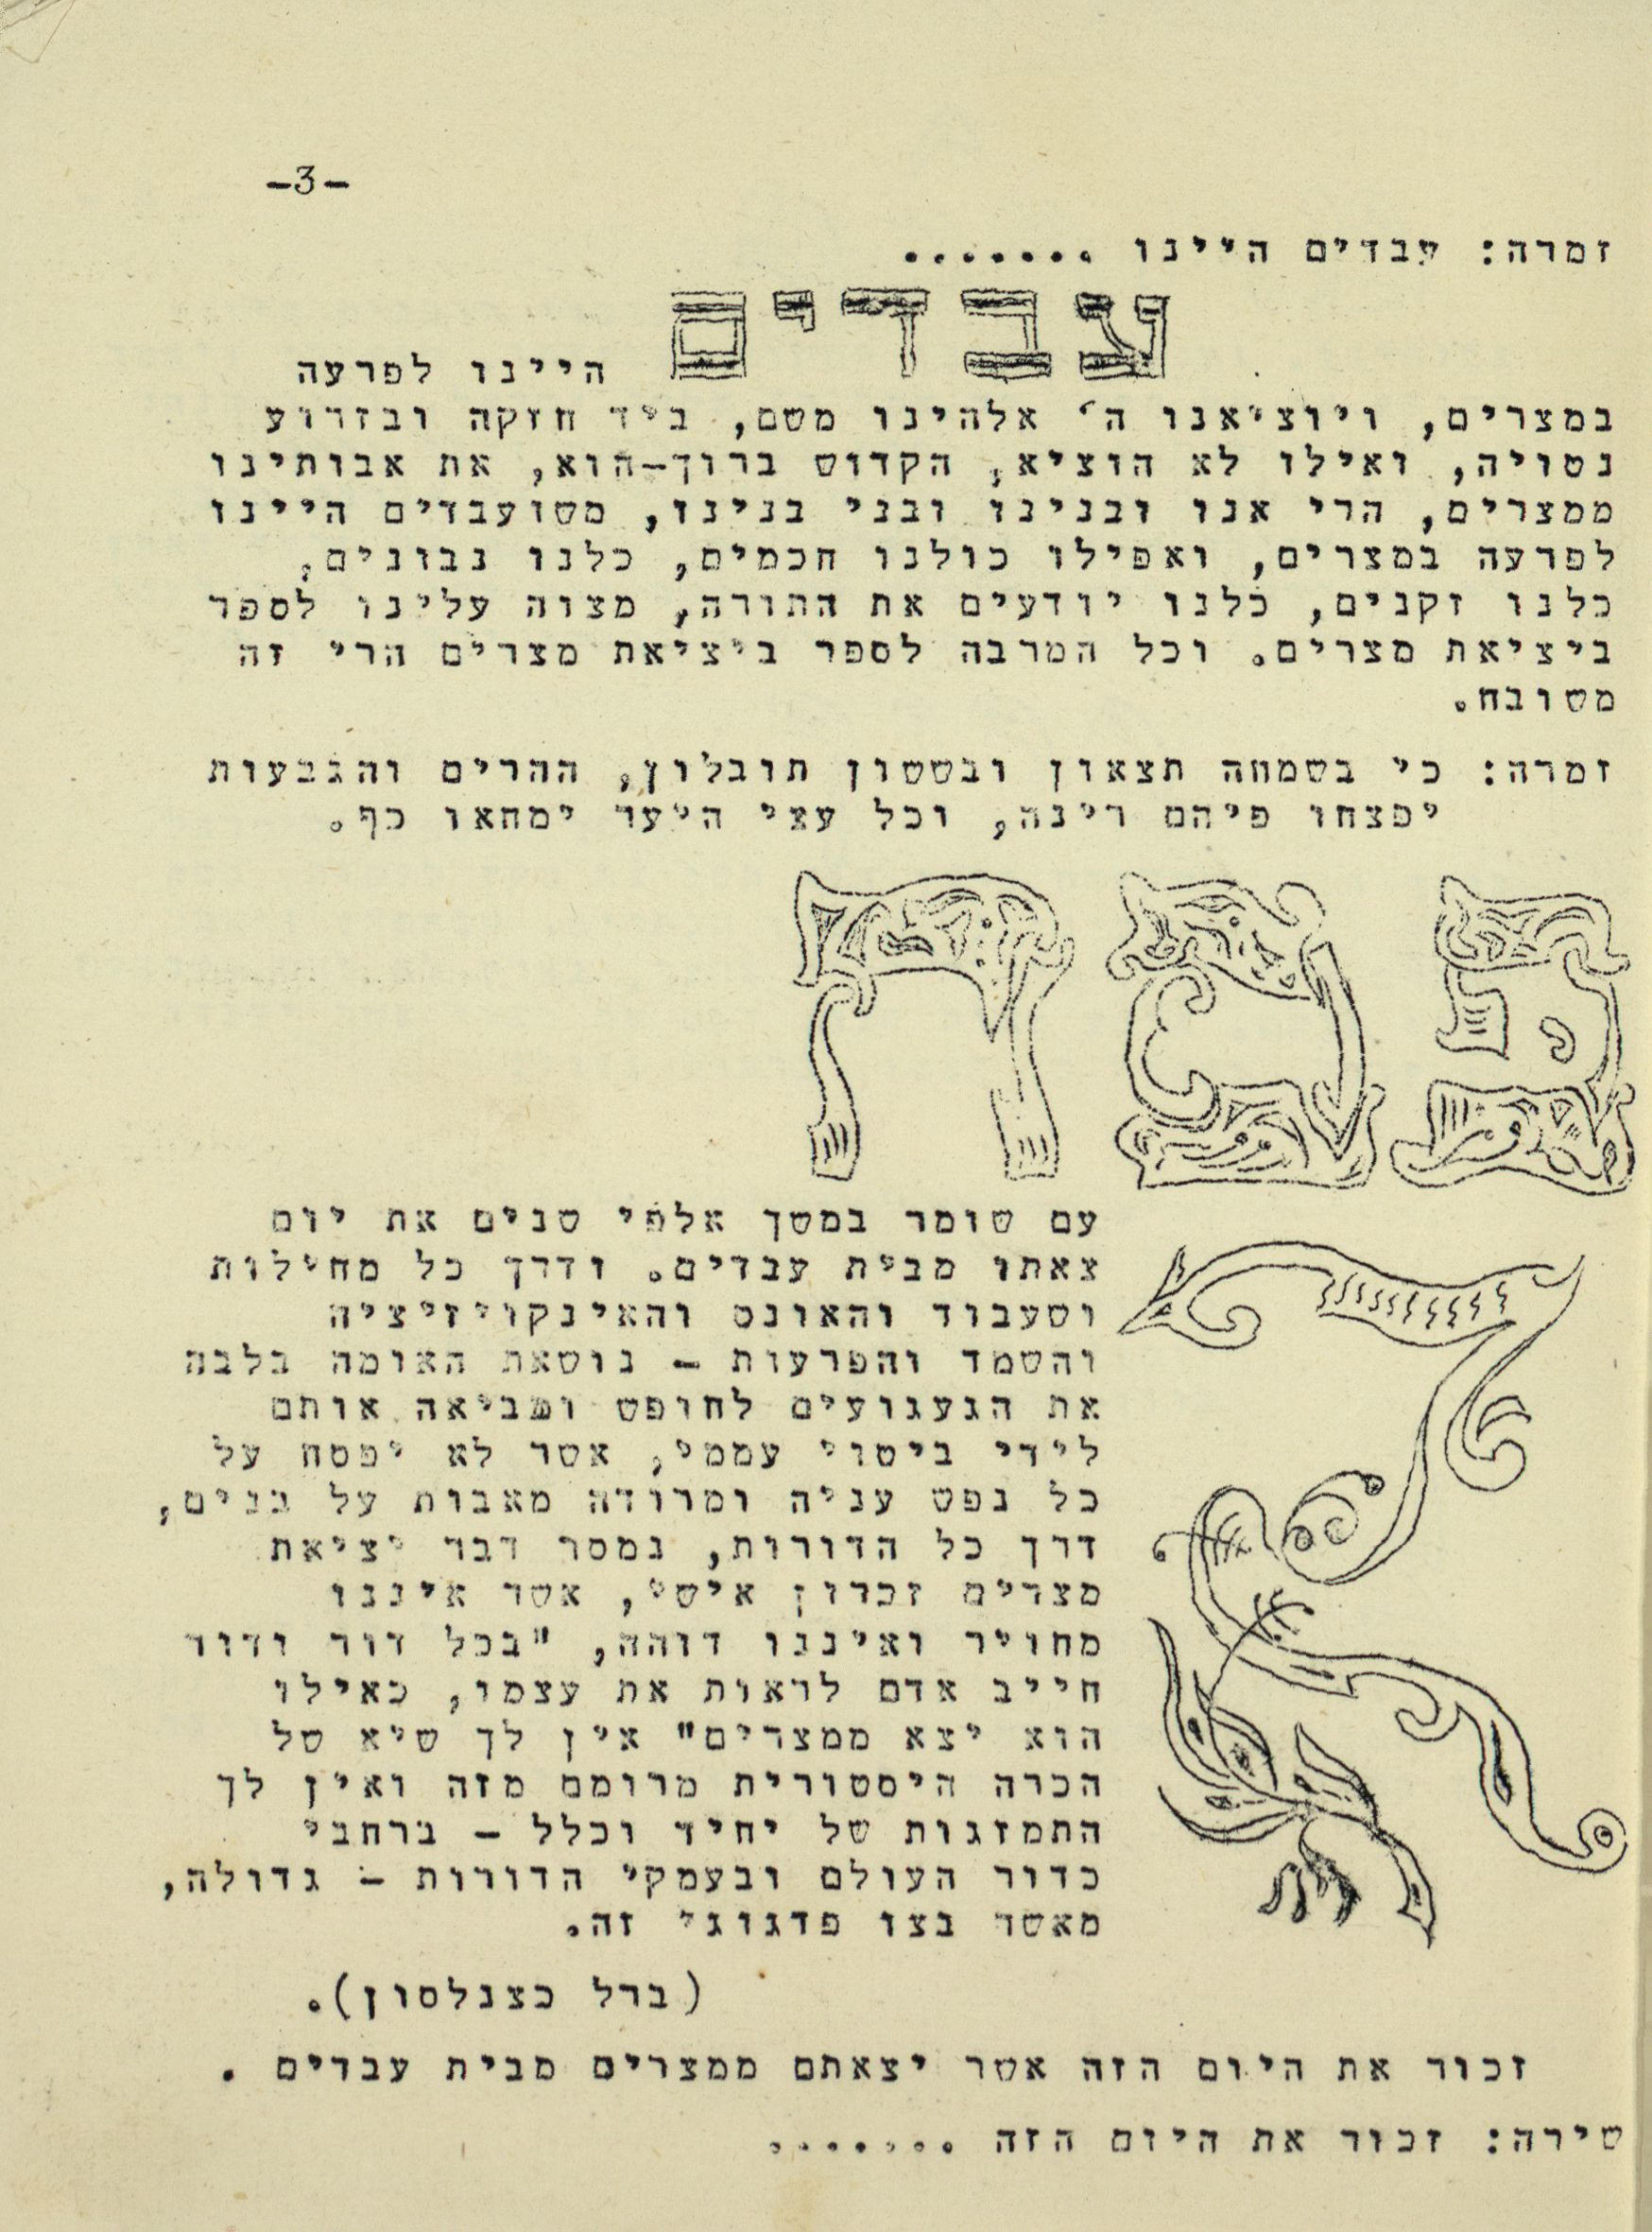 -3-
זמרה: עבדים היינו .......
עבדים היינו לפרעה
במצרים, ויוציאנו ה' אלהינו משם, ביד חזקה ובזרוע
נטויה, ואילו לא הוציא, הקדוש ברוך-הוא, את אבותינו
ממצרים, הרי אנו ובנינו ובני בנינו, משועבדים היינו
לפרעה במצרים, ואפילו כולנו חכמים, כלנו נבונים,
כלנו זקנים, כלנו יודעים את התורה, מצוה עלינו לספר
ביציאת מצרים. וכל המרבה לספר ביציאת מצרים הרי זה
משובח.
זמרה: כי בשמחה תצאון ובששון תובלון, ההרים והגבעות
יפצחו פיהם רינה, וכל עצי היער ימחאו כף.
פסח
עם שומר במשך אלפי שנים את יום
צאתו מבית עבדים. ודרך כל מחילות
ושעבוד והאונס והאינקויזיציה
והשמד והפרעות - נושאת האומה בלבה
את הגעגועים לחופש ומביאה אותם
לידי ביטוי עממי, אשר לא יפסח על
כל נפש עניה ומרודה מאבות על בנים,
דרך כל הדורות, נמסר דבר יציאת
מצרים זכרון אישי, אשר איננו
מחויר ואיננו דוהה, "בכל דור ודור
חייב אדם לראות את עצמו, כאילו
הוא יצא ממצרים" אין לך שיא של
הכרה היסטורית מרומם מזה ואין לך
התמזגות של יחיד וכלל - ברחבי
כדור העולם ובעמקי הדורות - גדולה,
מאשר בצו פדגוגי זה.
(ברל כצנלסון).
זכור את היום הזה אשר יצאתם ממצרים מבית עבדים .
שירה: זכור את היום הזה .......